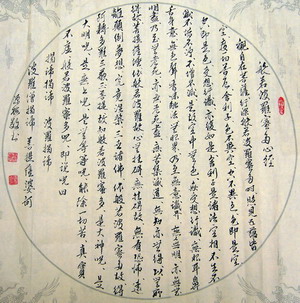 般若波羅蜜多心經
觀自在菩薩行深般若波羅蜜多時照見五蘊皆
空度一切苦厄舍利子色不異空空不異色色即是空
空即是色受想行識亦復如是舍利子是諸法空相不生不
滅不垢不淨不增不減是故空中無色無受想行識無眼耳鼻
舌身意無色聲香味觸法無眼界乃至無意識界無無明亦無無
明盡乃至無老死亦無老死盡無苦集滅道無智亦無得以無所
得故菩提薩埵依般若波羅蜜多故心無罣礙無罣礙故無有恐怖遠
離顛倒夢想究竟涅槃三世諸佛依般若波羅蜜多故得
阿耨多羅三藐三菩提故知般若波羅蜜多是大神咒是
大明咒是無上咒是無等等咒能除一切苦真實
不虛故說般若波羅蜜多咒即說咒曰
揭諦揭諦 波羅揭諦
波羅僧揭諦 菩提薩婆訶